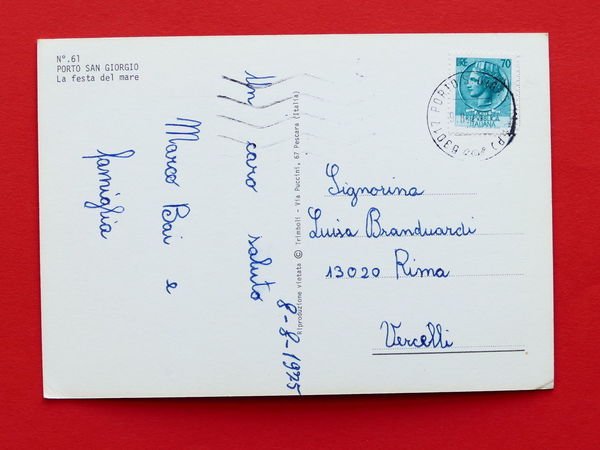 N°.61
PORTO SAN GIORGIO
La festa del mare
Un caro saluto
8-8-1975
Marco Bai e
famiglia
Riproduzione vietata © Trimboli - Via Puccini, 67 Pescara (Italia)
LIRE 70
REPUBBLICA
ITALIANA
63017 PORTO S.
Signorina
Luisa Branduardi
13020 Rima
Vercelli